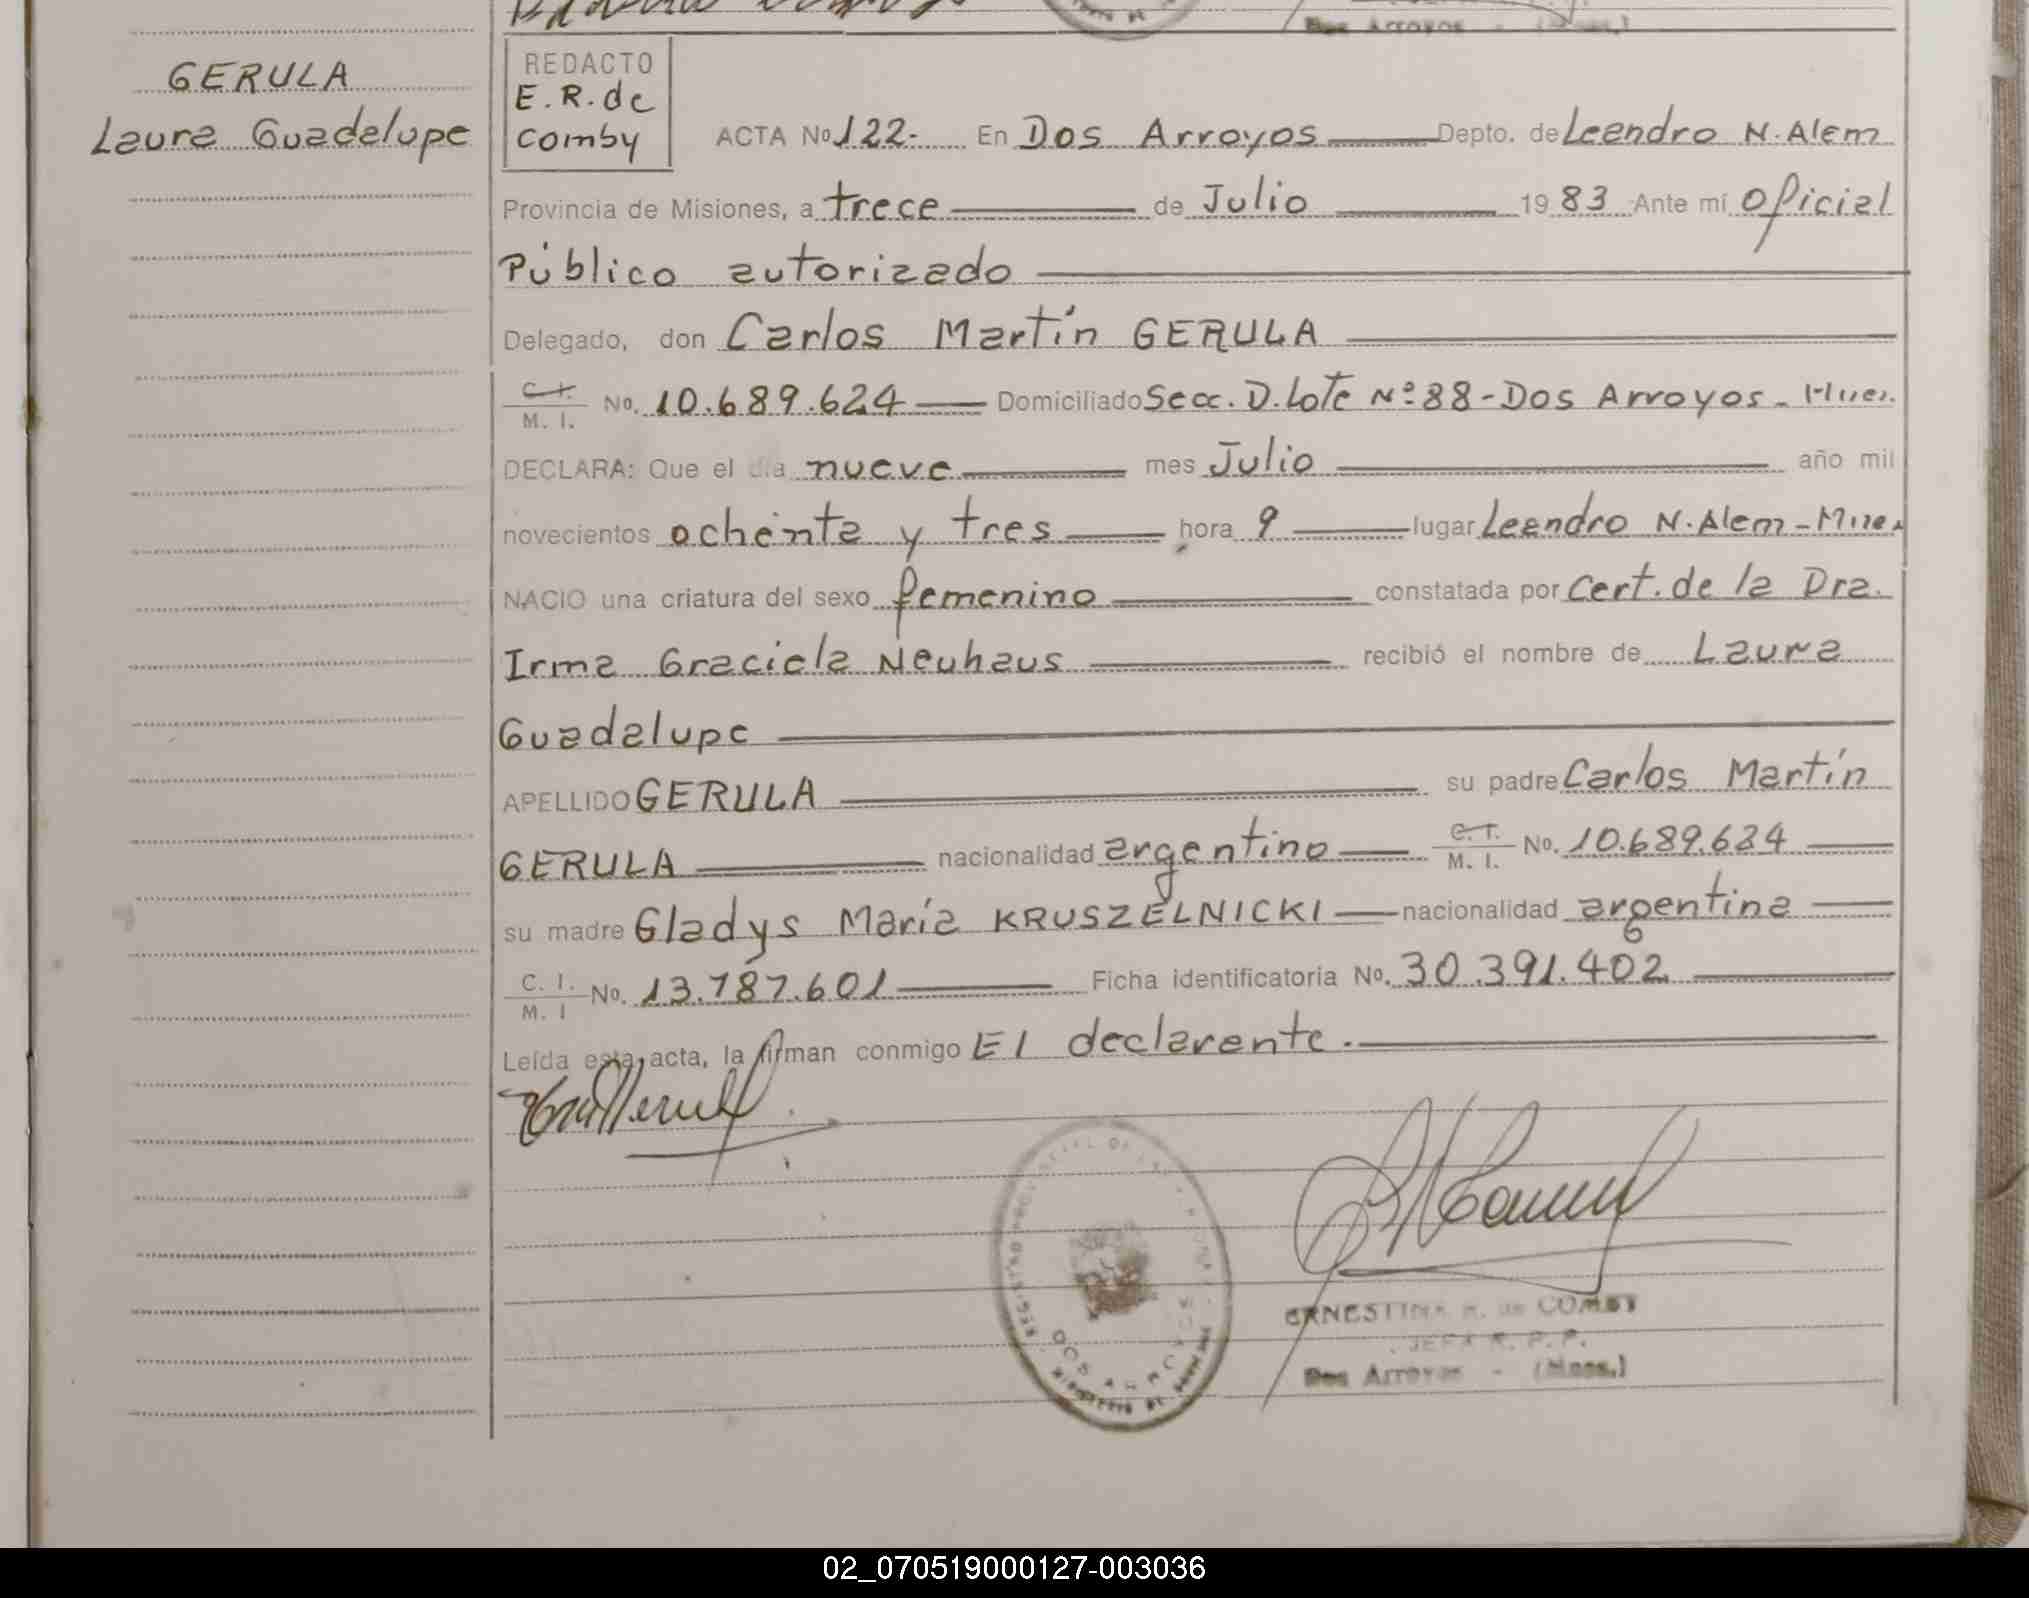 Dos Arroyos - (Mnes.)
GERULA
Laura Guadalupe
REDACTO
E.R. de
Comby
ACTA Nº 122.- En Dos Arroyos Depto. de Leandro N. Alem
Provincia de Misiones, a trece de Julio 1983 Ante mí Oficial
Público autorizado
Delegado, don Carlos Martín GERULA
C.I. M. I. No. 10.689.624 Domiciliado Secc. D. Lote Nº 88 - Dos Arroyos - Mnes.
DECLARA: Que el día nueve mes Julio año mil
novecientos ochenta y tres hora 9 lugar Leandro N. Alem - Mnes
NACIO una criatura del sexo femenino constatada por Cert. de la Dra.
Irma Graciela Neuhaus recibió el nombre de Laura
Guadalupe
APELLIDO GERULA su padre Carlos Martín
GERULA nacionalidad argentino C.I. M. I. No. 10.689.624
su madre Gladys María KRUSZELNICKI nacionalidad argentina
C. I. M. I No. 13.787.601 Ficha identificatoria No. 30.391.402
Leída esta acta, la firman conmigo El declarante.
ERNESTINA R. de COMBY
JEFA R. P. P.
Dos Arroyos - (Mnes.)
DOS ARROYOS
02_070519000127-003036